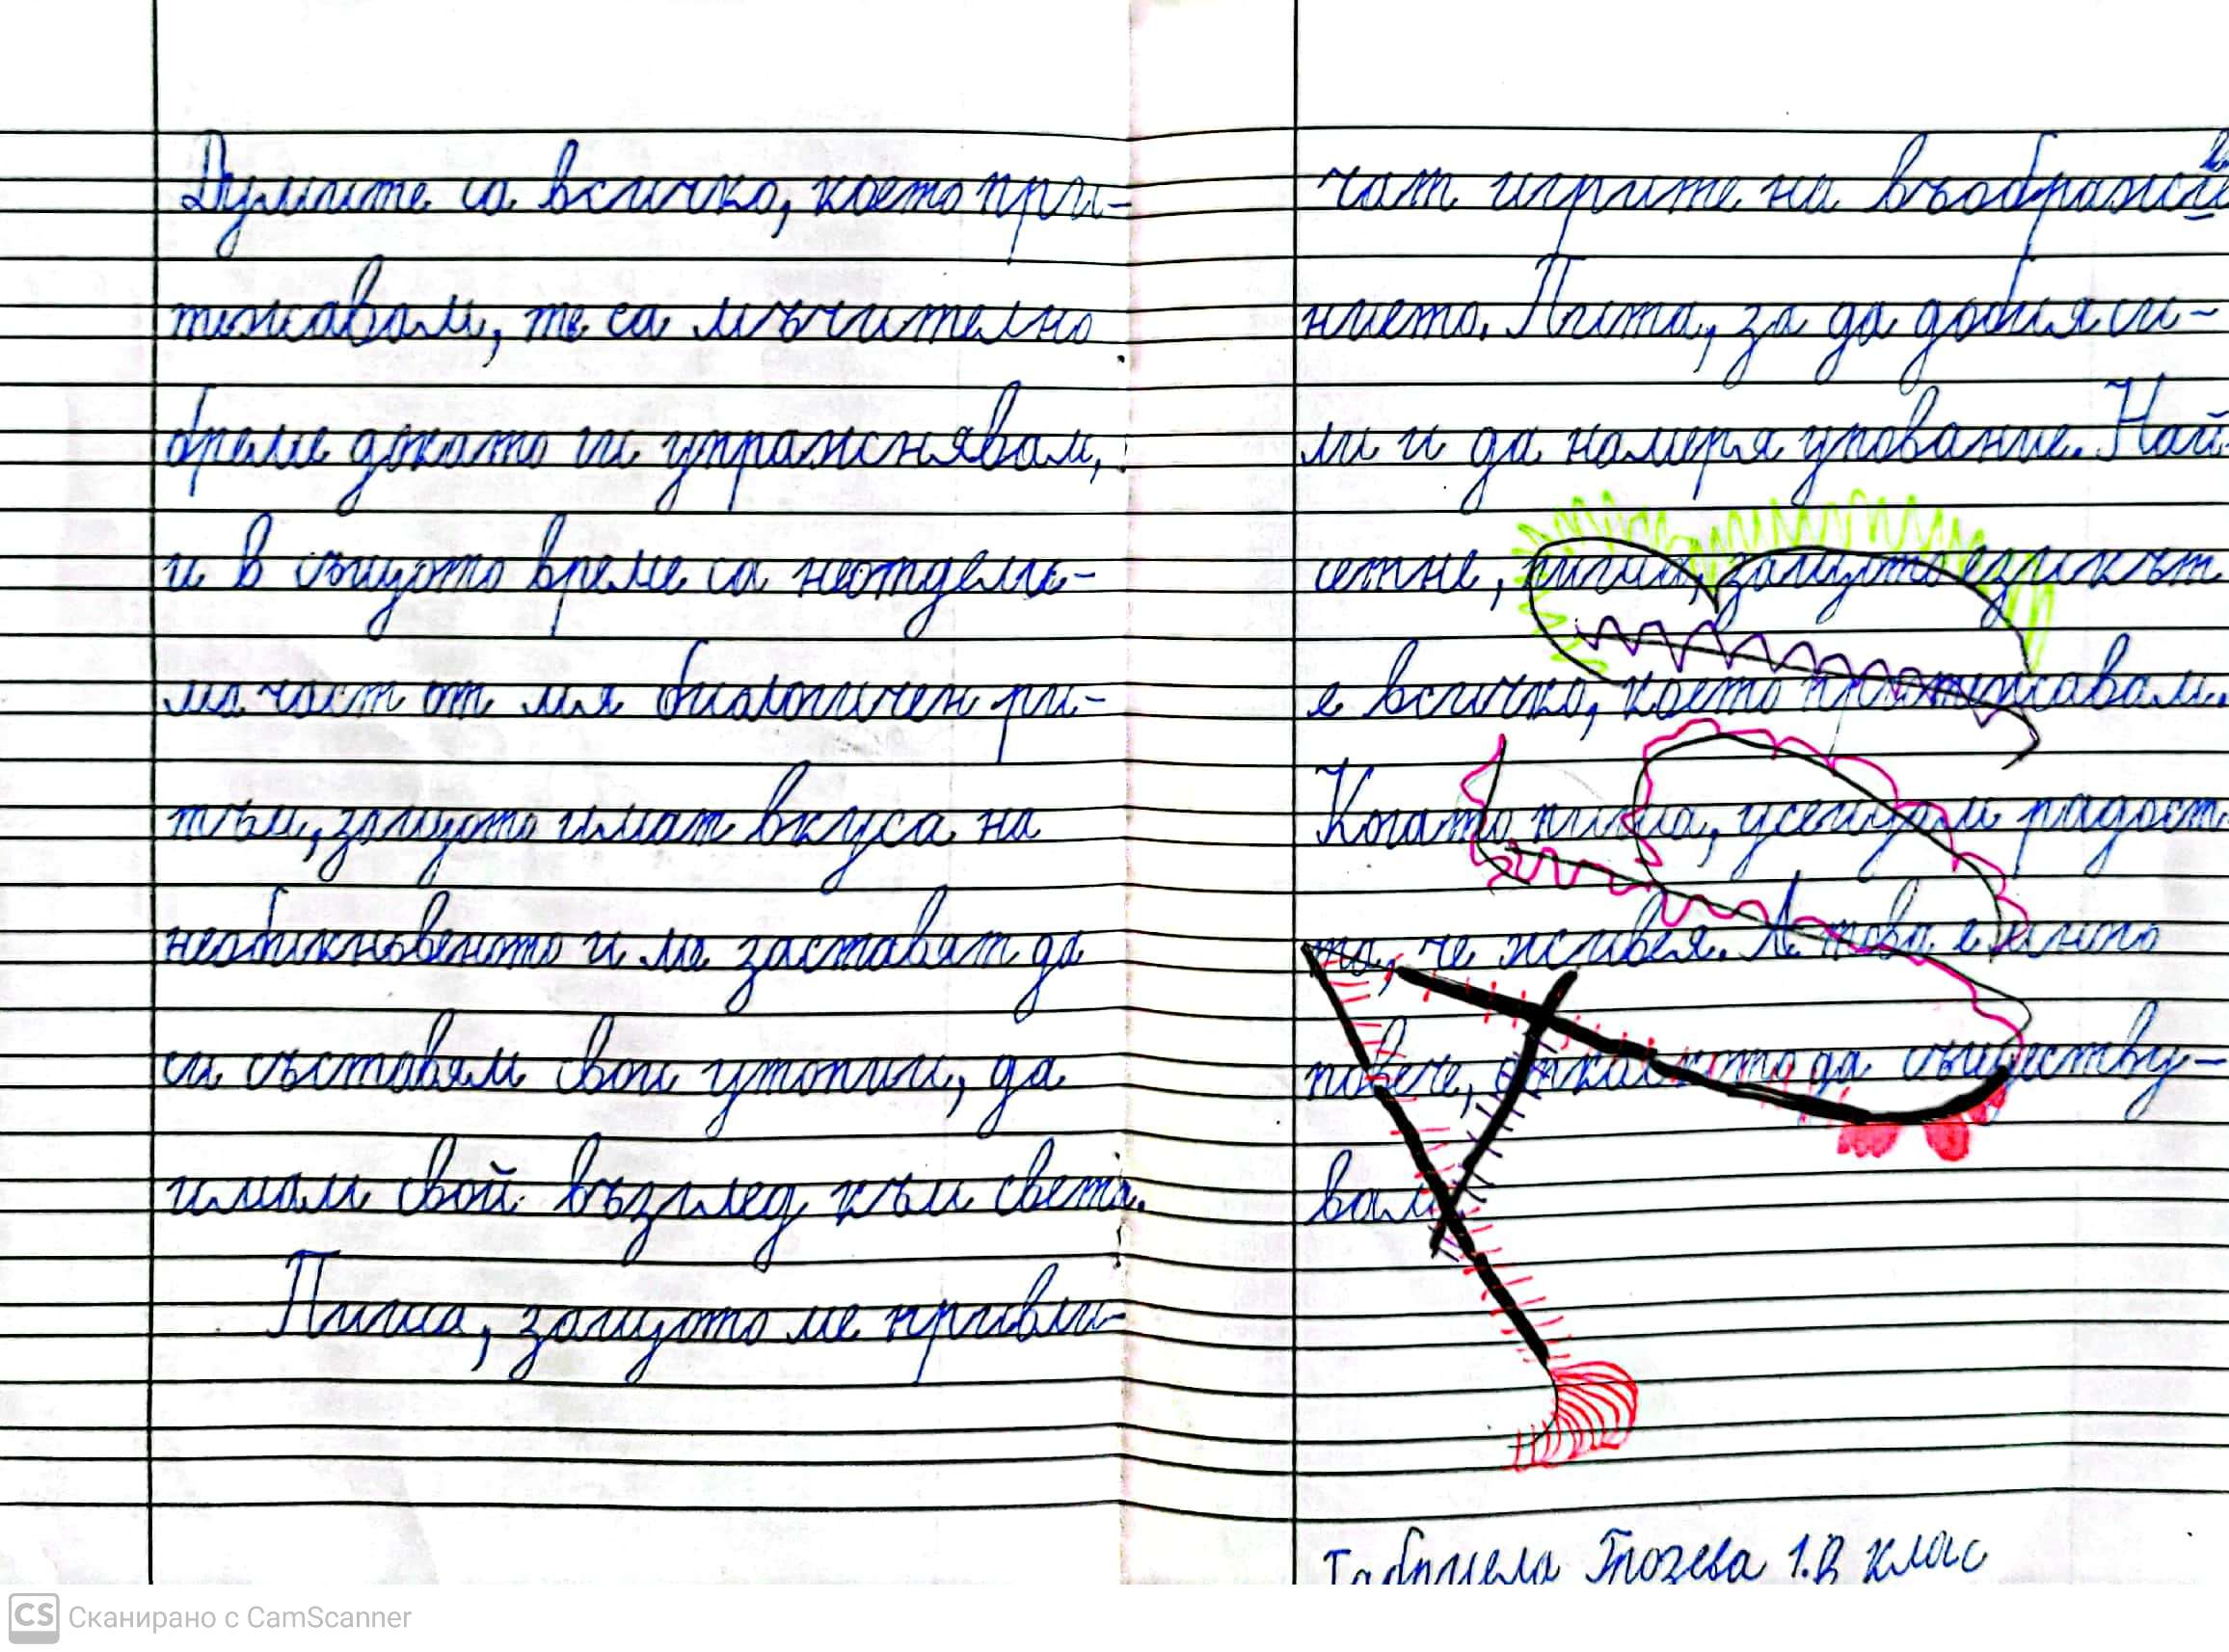 Думите са всичко, което при-
тежавам, те са мъчително
бреме докато ги упражнявам,
и в същото време са неотдели-
ма част от мя биологичен ри-
тъм, защото имат вкуса на
необикновеното и ме заставят да
си съставям свои утопии, да
имам свой възглед към света.
Пиша, защото ме привли-
чат игрите на въображе
нието. Пиша, за да добия си-
ли и да намеря упование. Най
сетне, пиша, защото езикът
е всичко, което притежавам.
Когато пиша, усещам радост
та, че живея. А това е много
повече, отколкото да съществу-
вам.
Габриела Грозева 1.В клас
CS Сканирано с CamScanner